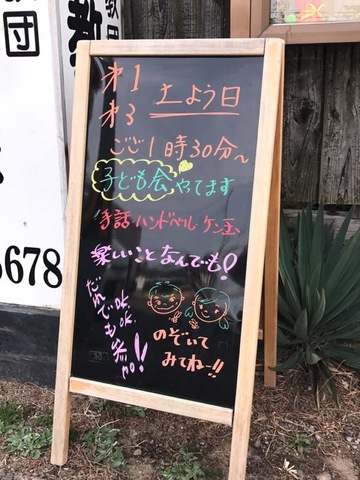 団
教
5678
第1
第3 土よう日
ごご1時30分~
子ども会やってます
手話・ハンドベル ケン玉
楽しいことなんでも!
だれでもOK.OK.
のぞいて
みてねー!!